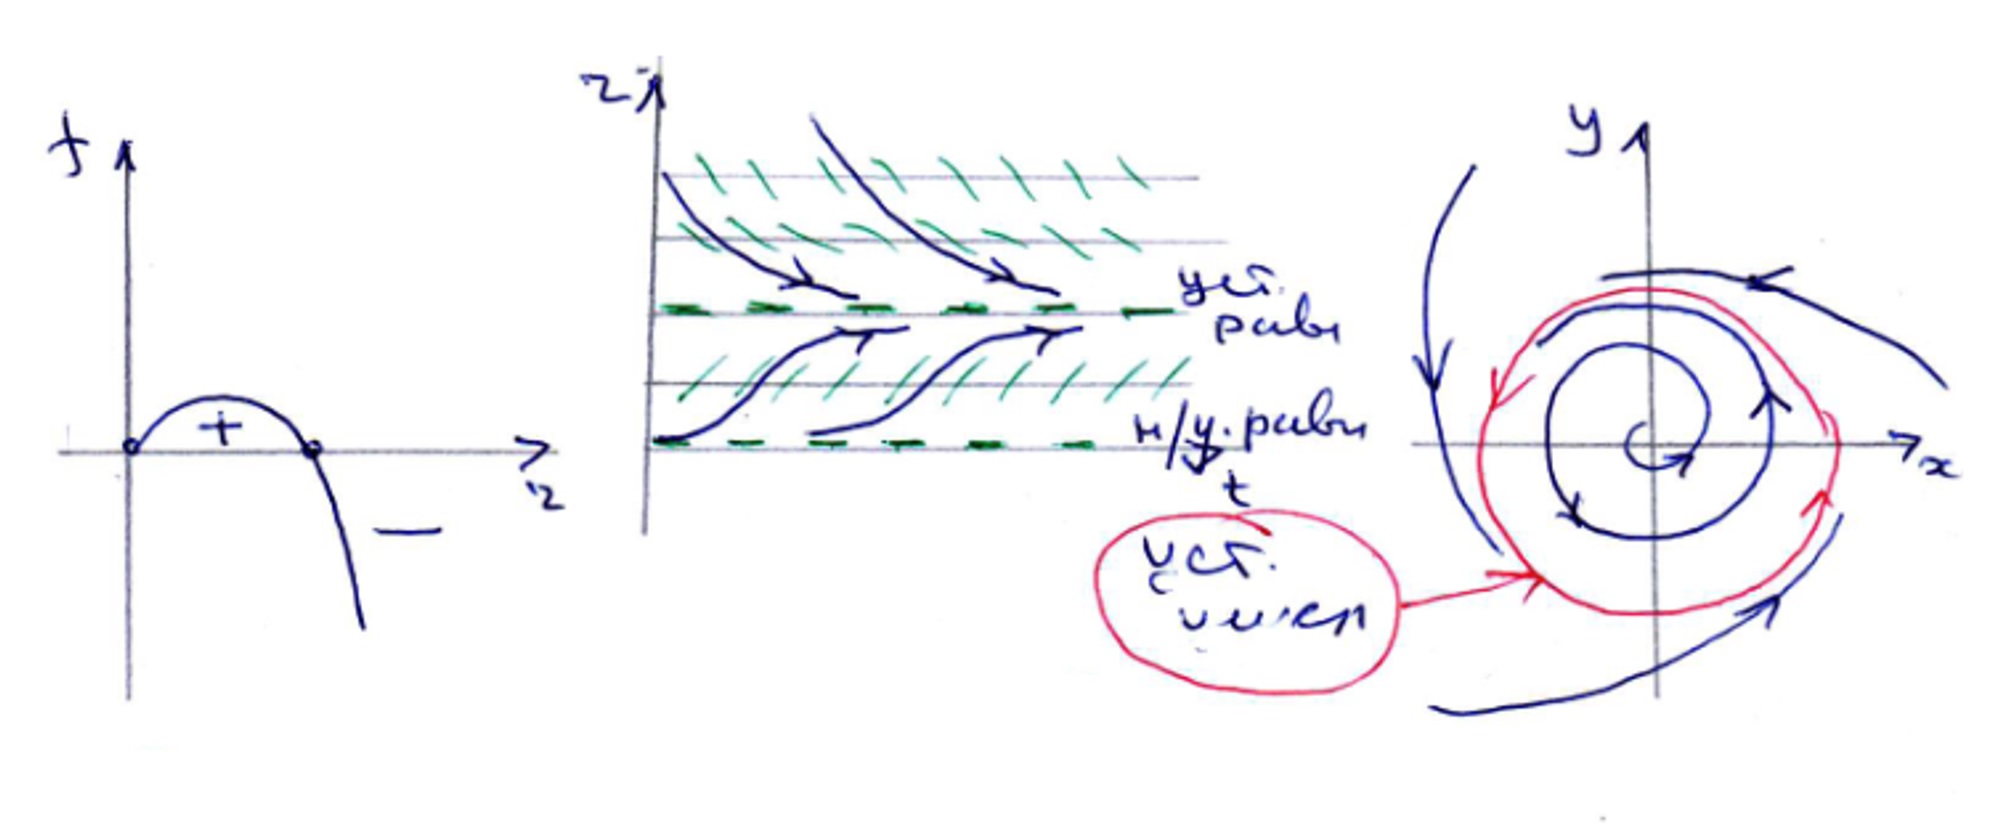 f
+
—
r
r
уст.
равн
н/у. равн
t
y
x
уст.
цикл